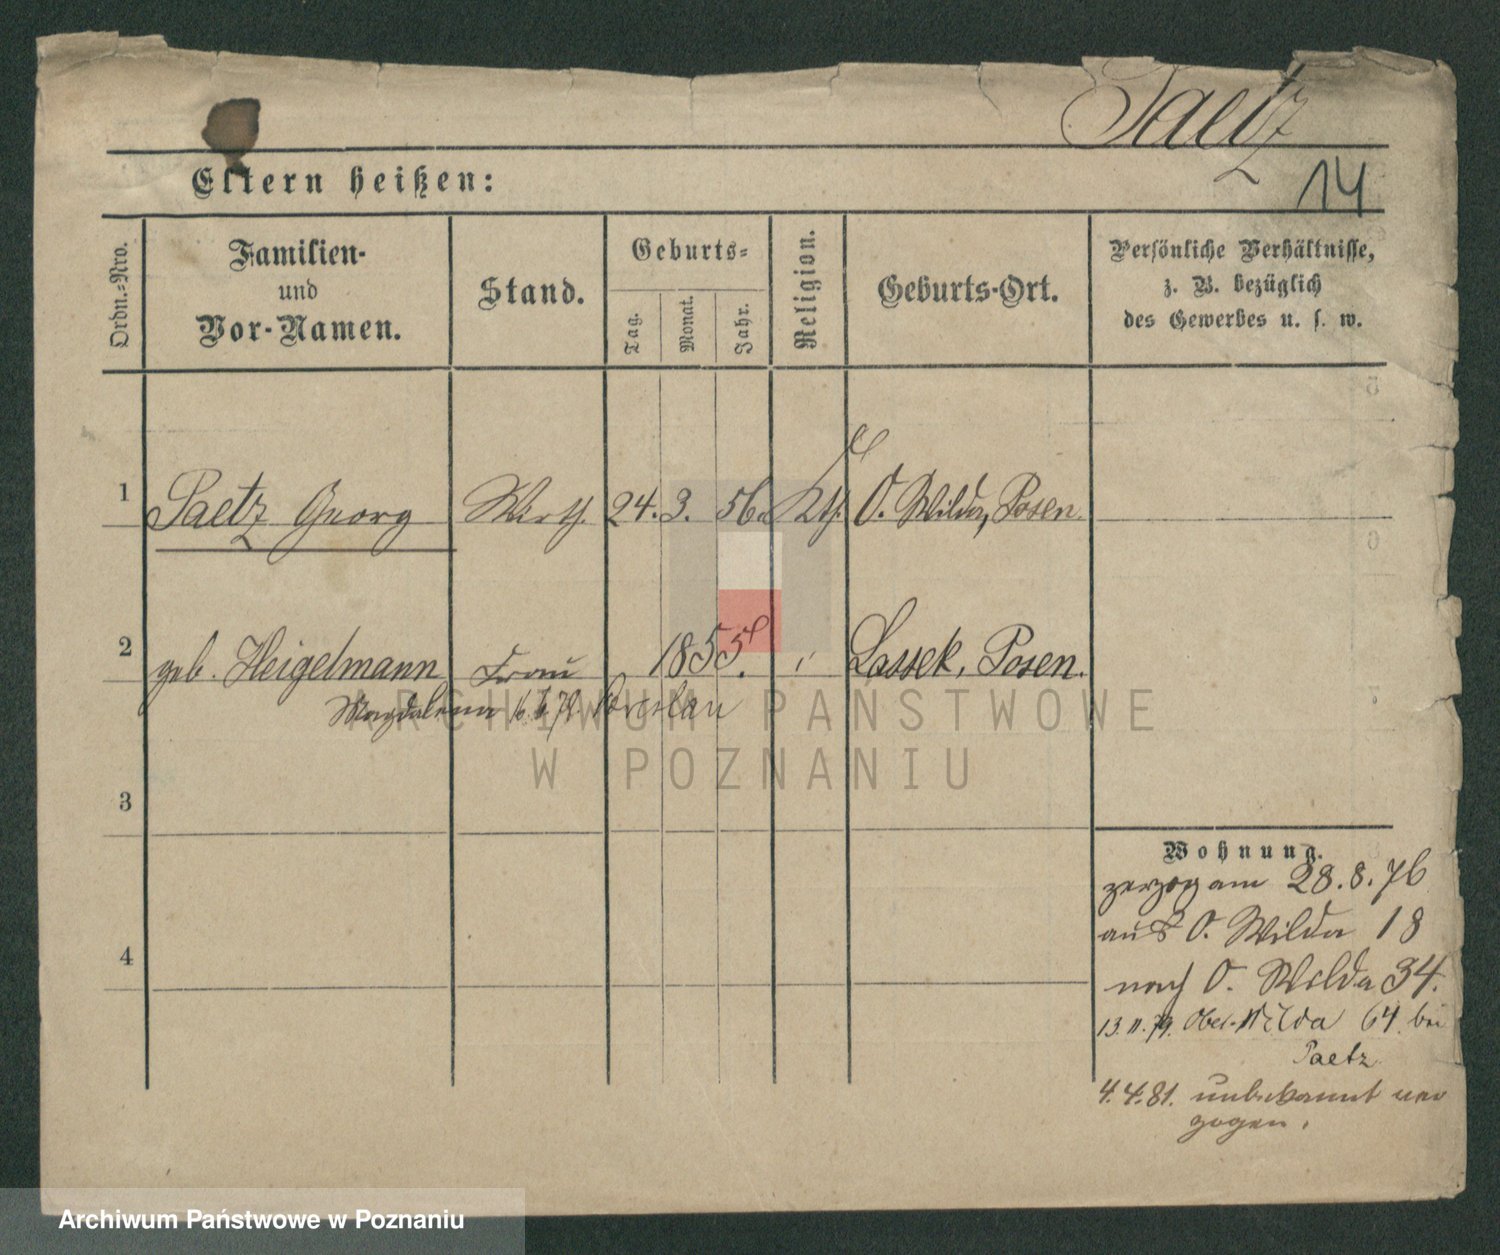 Paetz
14
Eltern heißen:
Ordn.-Nro.
Familien-
und
Vor-Namen.
Stand.
Geburts-
Tag.
Monat.
Jahr.
Religion.
Geburts-Ort.
Persönliche Verhältnisse,
z. B. bezüglich
des Gewerbes u. s. w.
1 Paetz Georg Wirth. 24. 3. 56. Kth. O. Wilda, Posen
2 geb. Heigelmann Frau 1855. " Lassek, Posen.
Magdalena Breslau
3
4
Wohnung.
verzog am 28.8.76
aus O. Wilda 18
nach O. Wilda 34.
13.11.79. Ober-Wilda 64 bei
Paetz
4.4.81. unbekannt ver
zogen.
ARCHIWUM PAŃSTWOWE
W POZNANIU
Archiwum Państwowe w Poznaniu